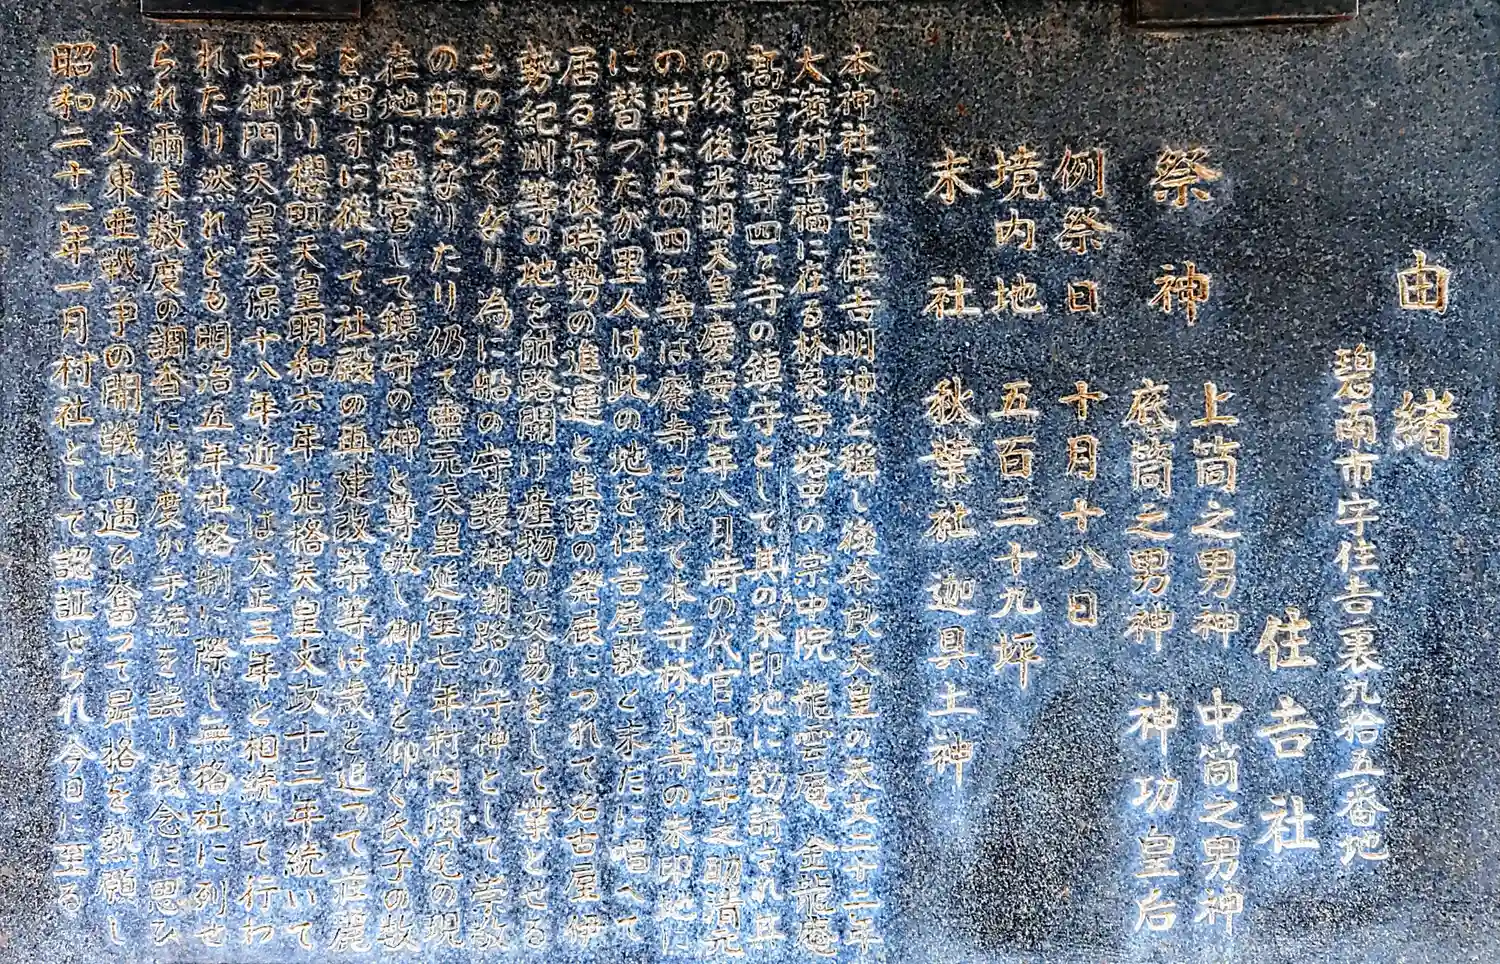 由緒
碧南市字住吉裏九拾五番地
住吉社
祭神 上筒之男神 中筒之男神
底筒之男神 神功皇后
例祭日 十月十八日
境内地 五百三十九坪
末社 秋葉社 迦具土神
本神社は昔住吉明神と稱し後奈良天皇の天文二十二年
大濱村十福に在る林泉寺塔中の宗中院 龍雲庵 金龍庵
高雲庵等四ヶ寺の鎮守として其の朱印地に勧請され其
の後後光明天皇慶安元年八月時の代官高山十之助清元
の時に此の四ヶ寺は廃寺されて本寺林泉寺の朱印地に
に替つたが里人は此の地を住吉屋敷と未だに唱へて
居る尓後時勢の進運と生活の発展につれて名古屋伊
勢紀州等の地を航路開け産物の交易をして業とせる
もの多くなり為に船の守護神潮路の守神として崇敬
の的となりたり仍て靈元天皇延宝七年村内濱尾の現
在地に遷宮して鎮守の神と尊敬し御神と仰ぐ氏子の数
を増すに從つて社殿の再建改築等は歳を追つて荘麗
となり櫻町天皇明和六年 光格天皇文政十二年続いて
中御門天皇天保十八年近くは大正三年と相続いて行わ
れたり然れども明治五年社格制に際し無格社に列せ
られ爾来数度の調査に幾度か手続を誤り残念に思ひ
しが大東亜戦争の開戦に遇ひ奮つて昇格を熱願し
昭和二十一年一月村社として認証せられ今日に至る